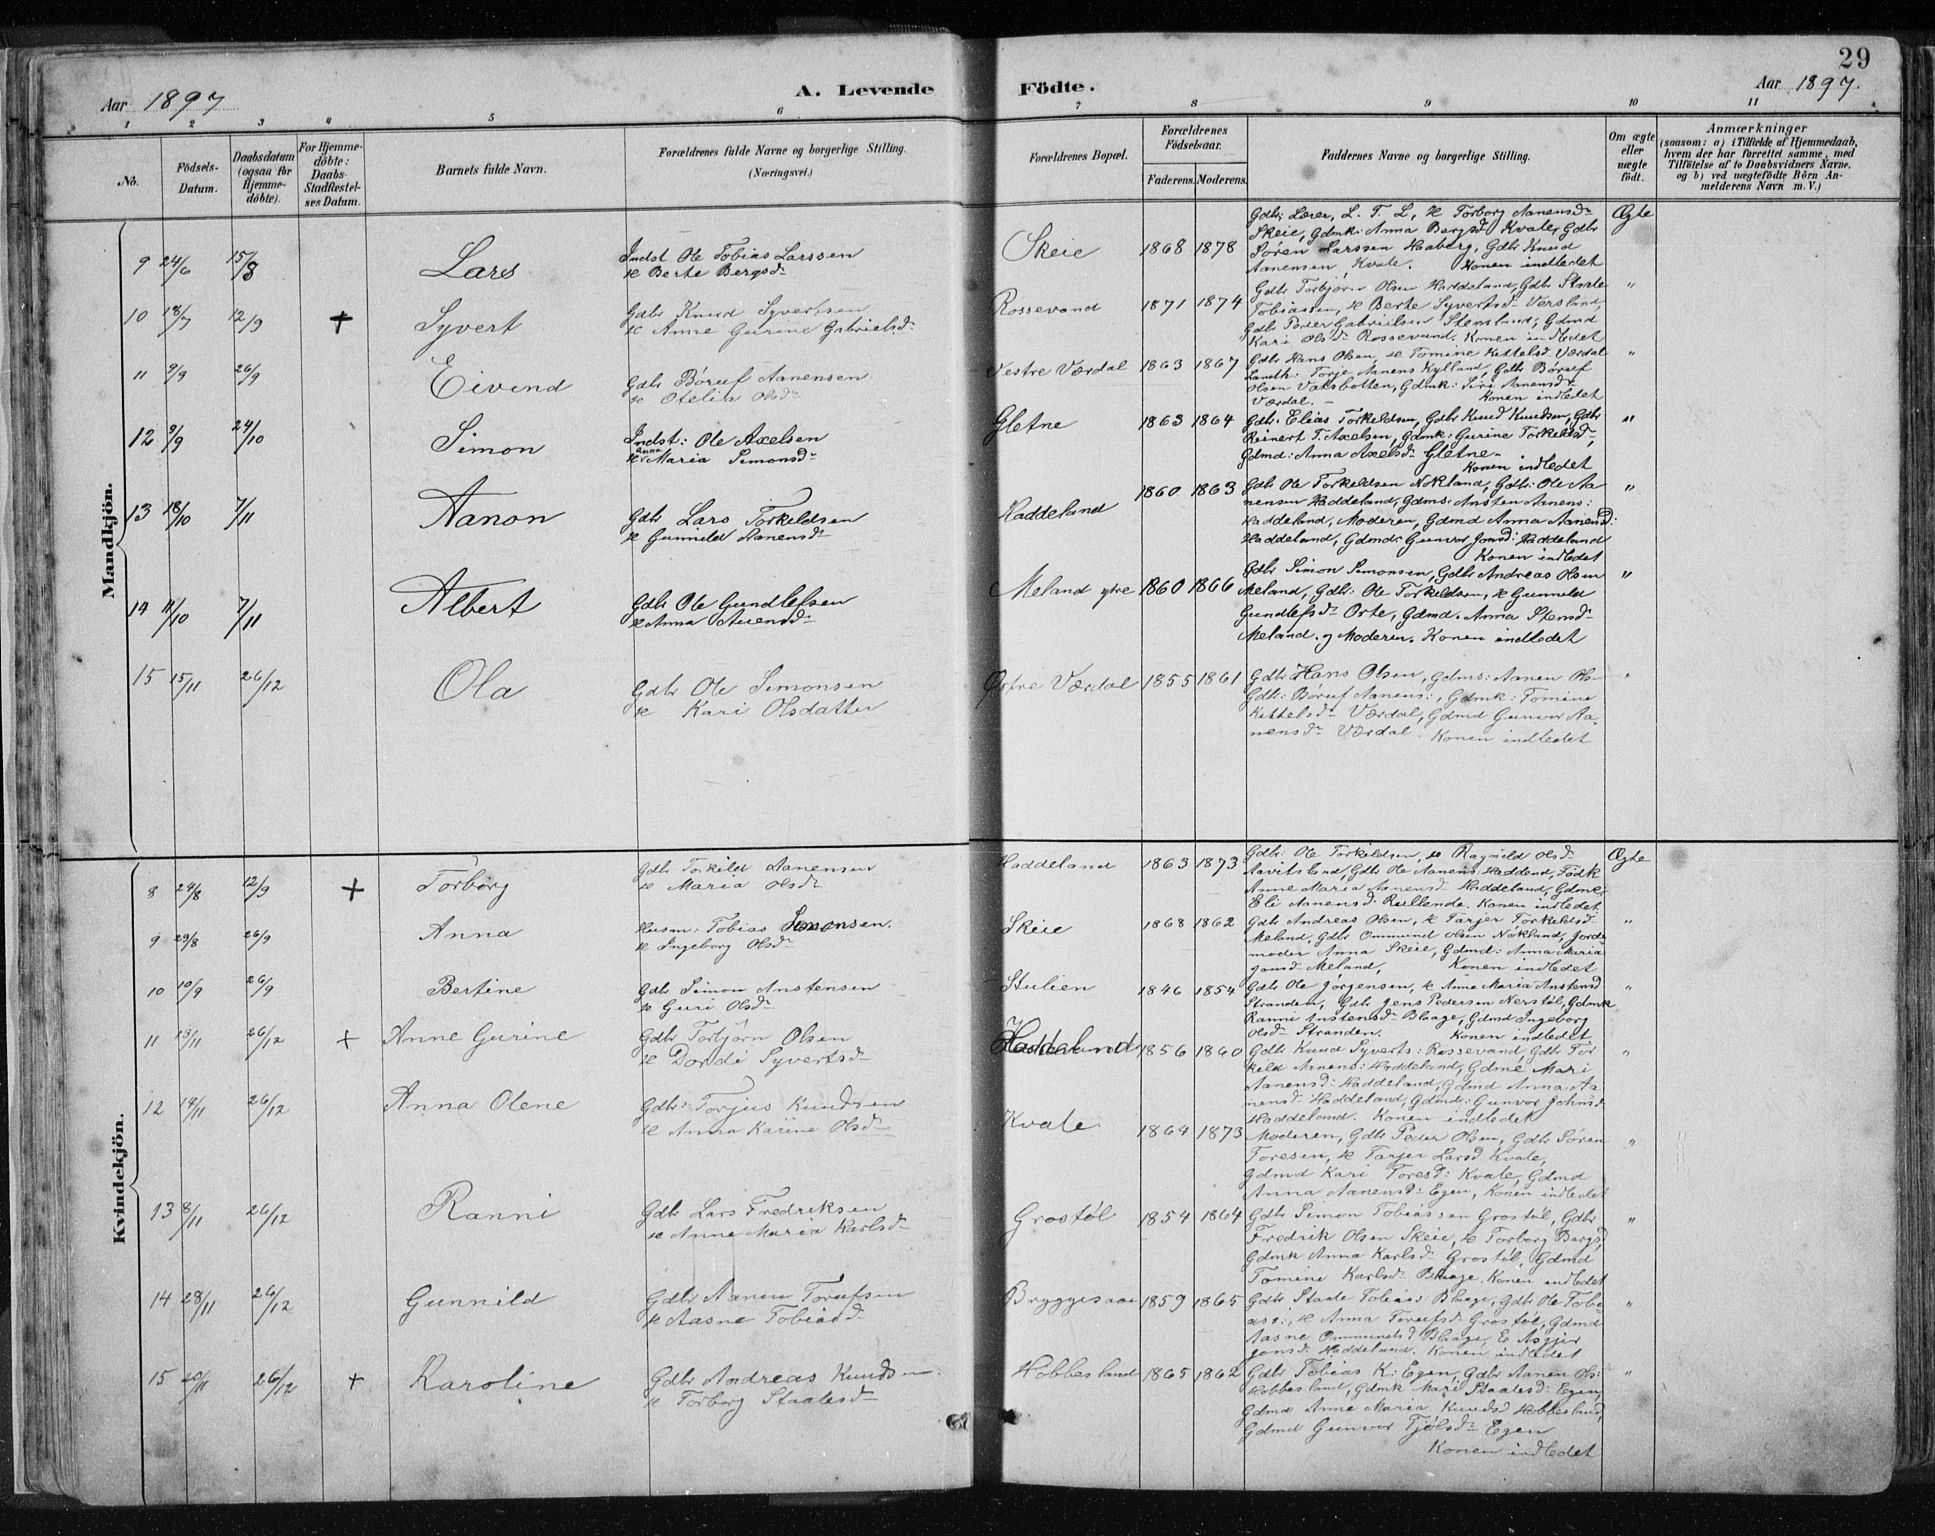 29
Aar 1897
A. Levende
Födte.
Aar 1897.
1 2 3 4 5 6 7 8 9 10 11
No.
Födsels-Datum.
Daabsdatum (ogsaa for Hjemme-döbte).
For Hjemme-döbte: Daabs-Stadfæstel-ses Datum.
Barnets fulde Navn.
Forældrenes fulde Navne og borgerlige Stilling.
(Næringsvei.)
Forældrenes Bopæl.
Forældrenes Födselsaar.
Faderens. Moderens.
Faddernes Navne og borgerlige Stilling.
Om ægte eller uægte födt.
Anmærkninger
(saasom: a) i Tilfælde af Hjemmedaab, hvem der har forrettet samme, med Tilföielse af to Daabsvidners Navne, og b) ved uægtefödte Börn An-melderens Navn m. V.)
Mandkjön.
9 24/6 15/8 Lars
Indst Ole Tobias Larssen
& Berte Bergsdr
Skeie 1868 1878
Gdbr Lærer, L. T. L, & Torborg Aanensdr
Skeie, Gdmk: Anna Bergsd Kvale, Gdbr
Søren Larssen Haaberg, Gdbr Knud
Aanensen Kvale. Konen indledet
Ægte
10 18/7 12/9 + Syvert
Gdbr Knud Syvertsen
& Anne Gurine Gabrielsdr
Rossevand 1871 1874
Gdbr Torbjörn Olsen Haddeland, Gdbr Staale
Tobiassen, & Berte Syvertsd Versland,
Gdbr Peder Gabrielsen Stensland, Gdmd
Kari Olsdr Rossevand. Konen indledet
"
11 9/9 26/9 Eivind
Gdbr Böruf Aanensen
& Otelia Olsdr
Vestre Værdal 1863 1867
Gdbr Hans Olsen, & Tomine Kittelsd Værdal
Landh: Torje Aanens Kylland, Gdbr Böruf
Olsen Vatsbotten, Gdmk: Siri Aanensdr
Værdal. – Konen indledet
"
12 9/9 24/10 Simon
Indst: Ole Axelsen
& Anna Maria Simonsdr
Gletne 1863 1864
Gdbr Elias Torkeldsen, Gdbr Knud Knudsen, Gdbr
Reinert T. Axelsen, Gdmk: Gurine Torkelsd
Gdmd: Anna Axelsdr Gletne.
Konen indledet
"
13 18/10 7/11 Aanon
Gdbr Lars Torkeldsen
& Gunnild Aanensdr
Haddeland 1860 1863
Gdbr Ole Torkeldsen Nökland, Gdbr: Ole Aa-
nensen Haddeland, Gdms: Ansten Aanens:
Haddeland, Moderen, Gdmd Anna Aanensd:
Haddeland, Gdmd Gunvor Jonsd: Haddeland
Konen indledet
"
14 11/10 7/11 Albert
Gdbr Ole Gundlefsen
& Anna Stiensdr
Meland ytre 1860 1866
Gdbr Simon Simonsen, Gdbr Andreas Olsen
Meland, Gdbr: Ole Torkeldsen, & Gunnild
Gundlefsdr Orte, Gdmd. Anna Stensdr
Meland. og Moderen. Konen indledet
"
15 15/11 26/12 Ola
Gdbr Ole Simonsen
& Kari Olsdatter
Østre Værdal 1855 1861
Gdbr Hans Olsen, Gdms: Aanen Ols-
Gdbr: Böruf Aanens:, Gdmk: Tomine
Kittelsdr Værdal, Gdmd Gunvor Aa-
nensdr Værdal. Konen indledet
"
Kvindekjön.
8 24/8 12/9 + Torborg
Gdbr Torkild Aanensen
& Maria Olsdr
Haddeland 1863 1873
Gdbr: Ole Torkildsen, & Ragnild Olsd:
Aavitsland, Gdbr Ole Aanens Haddend, Födk
Anne Maria Aanensdr Haddeland, Gdmk:
Eli Aanensd: Rullende. Konen indledet
Ægte
9 29/8 26/9 Anna
Husm: Tobias Simonsen.
& Ingeborg Olsdr
Skeie 1868 1862
Gdbr Andreas Olsen, & Tarjer Torkelsd:
Meland, Gdbr Ommund Olsen Nökland, Jorde-
moder Anna Skeie, Gdmd: Anna Maria
Jonsd Meland, Konen indledet
"
10 10/9 26/9 Bertine
Gdbr Simon Anstensen
& Guri Olsdr
Stulien 1846 1854
Gdbr Ole Jörgensen, & Anne Maria Anstensd
Stranden, Gdbr Jens Pedersen Nerstöl, Gdmk
Ranni Anstensdr Blaage, Gdmd Ingeborg
Olsdr Stranden. Konen indledet
"
11 13/11 26/12 + Anne Gurine
Gdbr Torbjörn Olsen
& Dordi Syvertsdr
Haddeland 1856 1860
Gdbr Knud Syverts: Rossevand, Gdbr Tor
keld Aanens: Haddeland, Gdme Mari
Aanensd: Haddeland, Gdmd Anna Aa
nensdr Haddeland, Gdmd: Gunvor Johnsd
Haddeland. Konen indledet
"
12 14/11 26/12 Anna Olene
Gdbr Torjus Knudsen
& Anna Karine Olsdr
Kvale 1864 1873
Moderen, Gdbr Peder Olsen, Gdbr Sören
Toresen, & Tarjer Larsd Kvale,
Gdmd Kari Toresd: Kvale, Gdmd
Anna Aanensd: Egen, Konen indledet
"
13 8/11 26/12 Ranni
Gdbr Lars Fredriksen
& Anne Maria Karlsdr
Grostöl 1854 1864
Gdbr Simon Tobiassen Grostöl, Gdbr
Fredrik Olsen Skeie, & Torborg Bergsd,
Gdmk Anna Karlsdr Grostöl, Gdmd
Tomine Karlsdr Blaage. Konen indledet
"
14 28/11 26/12 Gunnild
Gdbr Aanen Torufsen
& Aasne Tobiasd
Bryggesaae 1859 1865
Gdbr Staale Tobias: Blaage, Gdbr Ole Tobi-
ass:, & Anna Torufsdr Grostöl, Gdmd
Aasne Ommundsd Blaage, E Asgjer
Jonsd: Haddeland. Konen indledet
"
15 20/11 26/12 + Karoline
Gdbr Andreas Knudsen
& Torborg Staalesdr
Hobbesland 1865 1862
Gdbr Tobias K: Egen, Gdbr Aanen Ols:
Hobbesland, Gdmk Mari Staalesd: Egen,
Gdmd Anne Maria Knudsd Hobbesland,
Gdmd Gunvor Tjölsdr Egen
Konen indledet
"